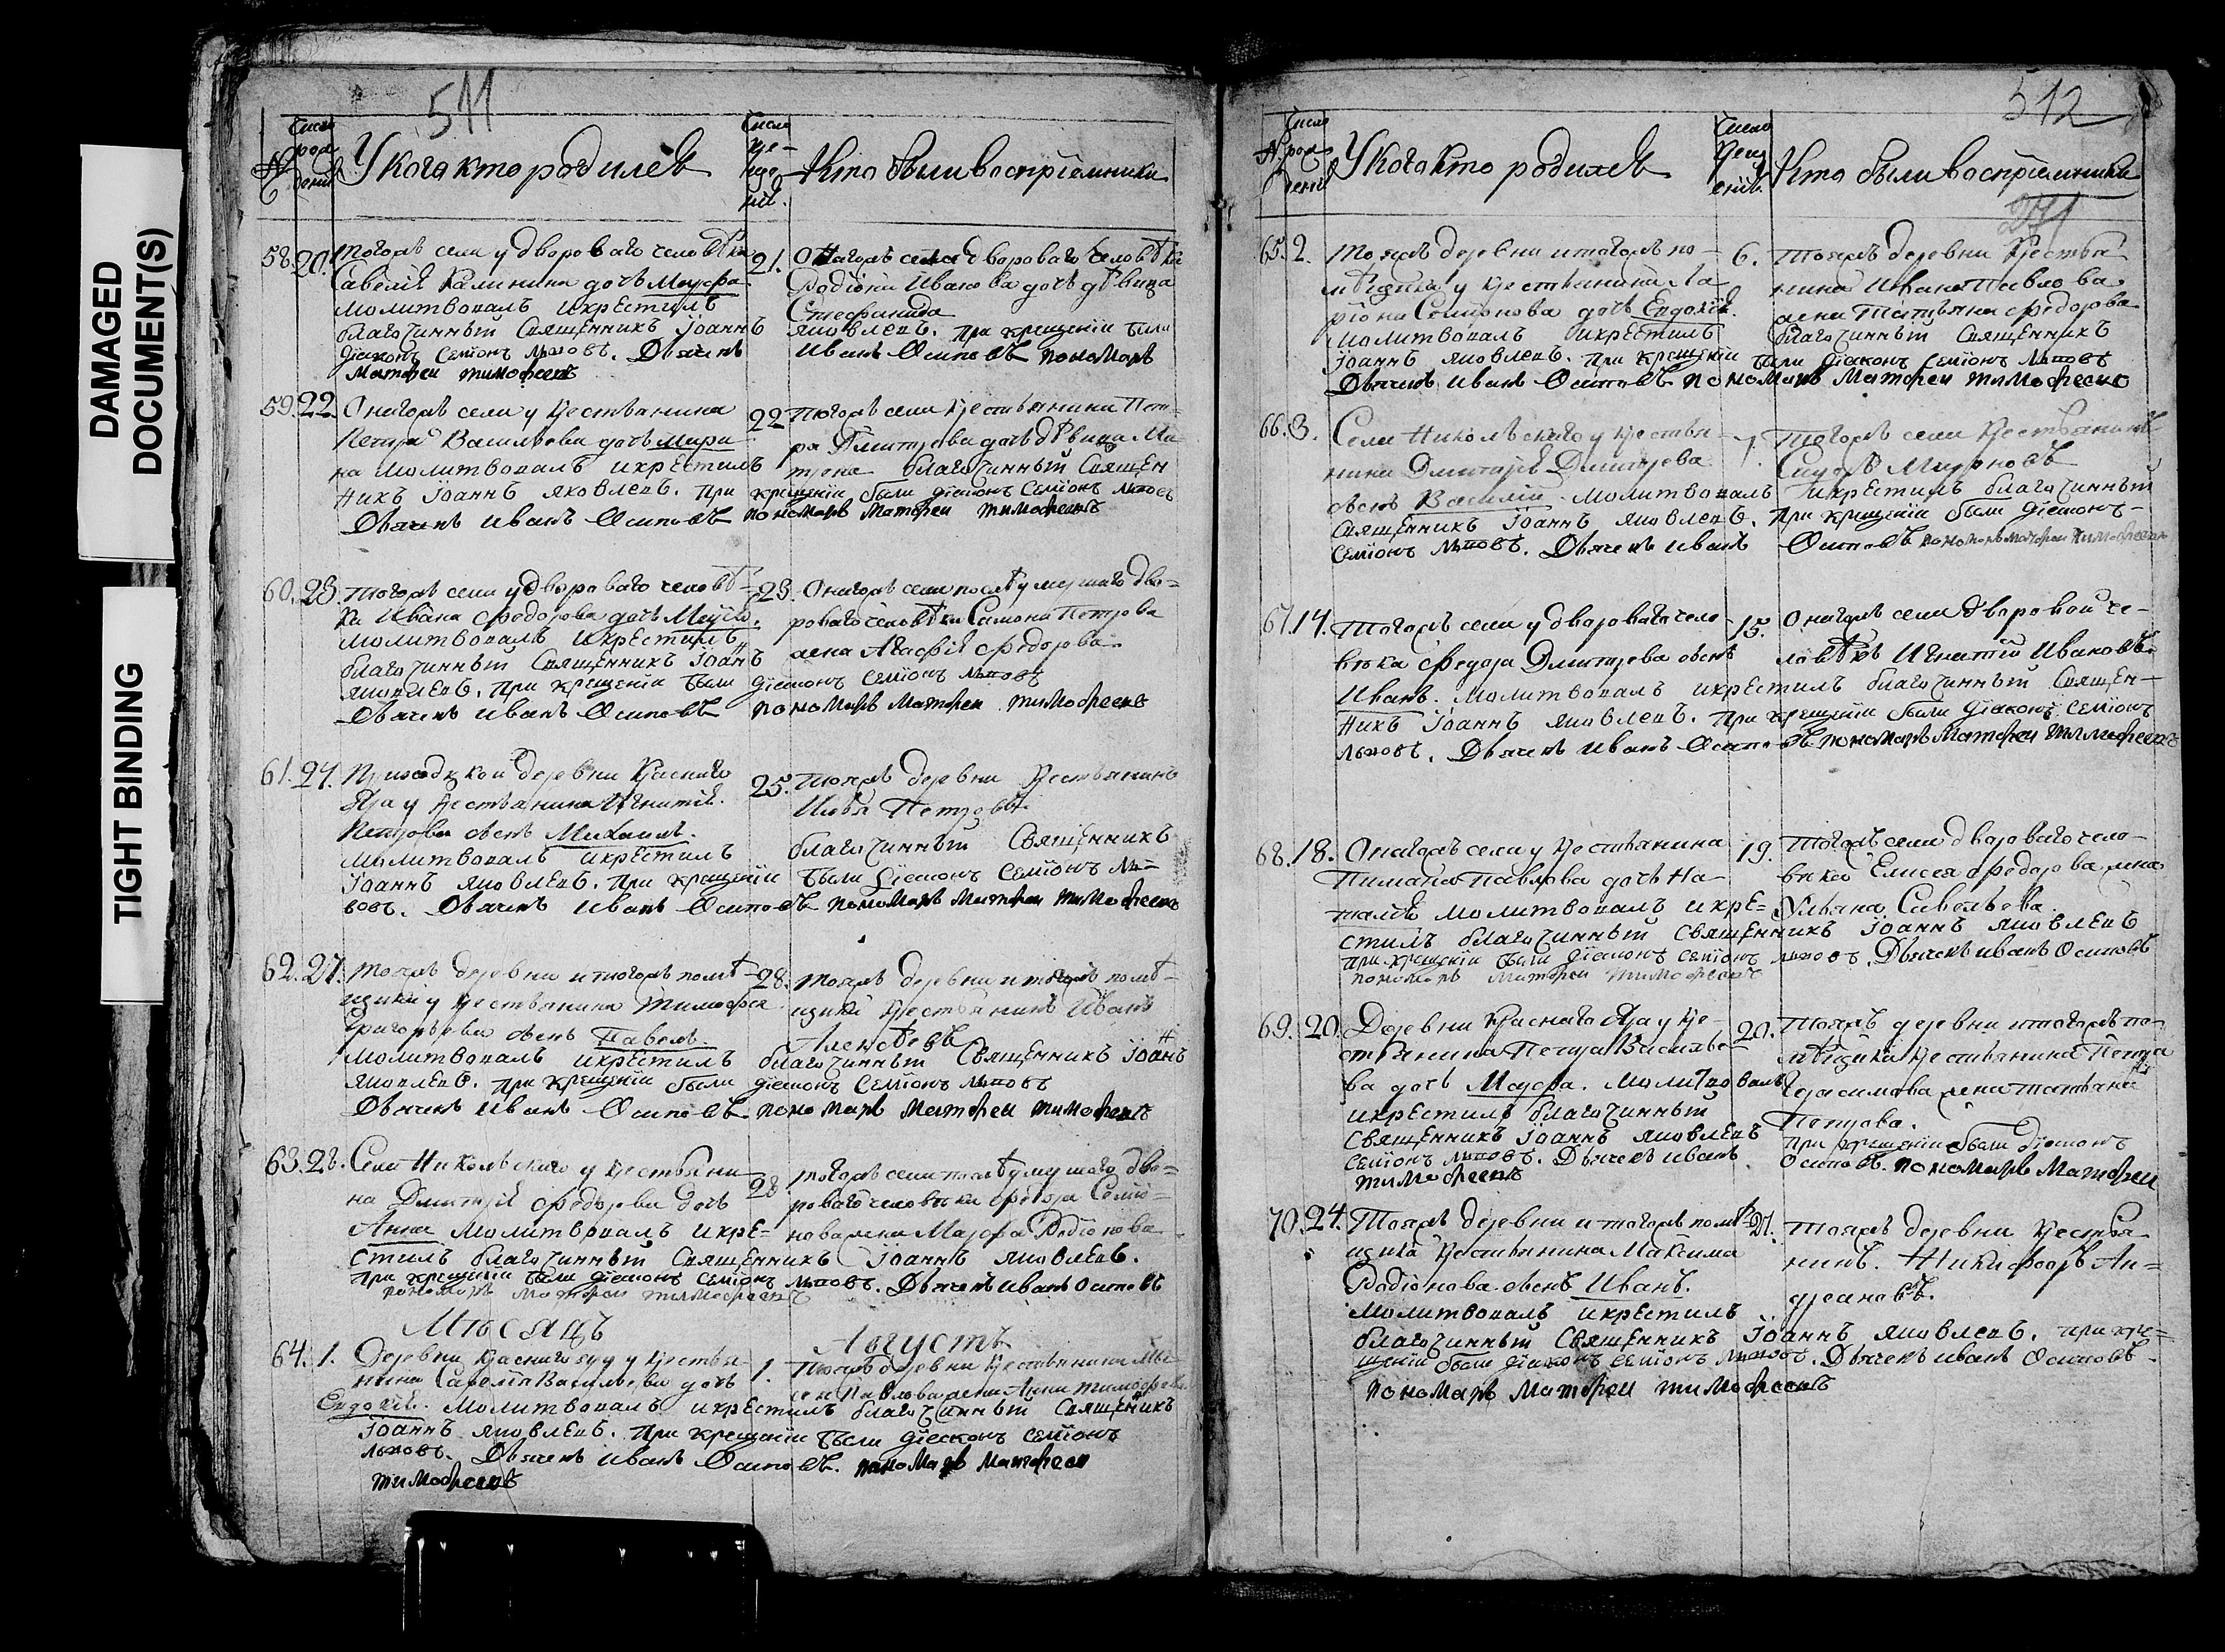 DAMAGED
DOCUMENT(S)
TIGHT BINDING
511
№
Число рождений
У кого кто родился
Число крещений
Кто были восприемники
58. 20. Тогожъ села у двороваго человѣка
Савелія Калинина дочь Марфа
молитвовалъ и крестилъ
благочинный священникъ Іоаннъ
діаконъ Семіонъ Дьячекъ
Матфеи Тимофеевъ
21. Онагожъ села двороваго человѣка
Родіона Иванова дочь дѣвица
Стефанида
Яковлевъ. При крещеніи были
Иванъ Осиповъ пономарь
59. 22. Онагожъ села у крестьянина
Петра Васильева дочь Мари
на молитвовалъ и крестилъ
никъ Іоаннъ Яковлевъ. При
Дьячекъ Иванъ Осиповъ
22 Тогожъ села крестьянина Пет-
ра Дмитрева дочь дѣвица Ма
трена благочинный священ
крещеніи были діаконъ Семіонъ
пономарь Матфеи Тимофеевъ
60. 23. Тогожъ села у двороваго человѣ-
ка Ивана Федорова дочь
молитвовалъ и крестилъ
благочинный священникъ Іоанъ
Яковлевъ. При крещеніи были
Дьячекъ Иванъ Осиповъ
23. Онагожъ села послѣ умершаго дво-
роваго человѣка Симона Петрова
жена Агафія Федорова
діаконъ Семіонъ
пономарь Матфеи Тимофеевъ
61. 24. Приходской деревни Краснаго
Яра у крестьянина Игнатія
Петрова сынъ Михаилъ.
молитвовалъ и крестилъ
Іоаннъ Яковлевъ. При крещеніи
Дьячекъ Иванъ Осиповъ
25. Тояжъ деревни крестьянинъ
Илья Петровъ
благочинный священникъ
были діаконъ Семіонъ
пономарь Матфеи Тимофеевъ
62. 27. Тояжъ деревни и тогожъ помѣ-
щика у крестьянина Тимофея
Григорьева сынъ Павелъ.
молитвовалъ и крестилъ
Яковлевъ. При крещеніи были
Дьячекъ Иванъ Осиповъ
28. Тояжъ деревни и тогожъ помѣ-
щика крестьянинъ Иванъ
Алексѣевъ
благочинный священникъ Іоанъ
діаконъ Семіонъ
пономарь Матфеи Тимофеевъ
63. 28. Села Никольскаго у крестьяни
на Дмитрія Федорова дочь
Анна молитвовалъ и кре-
стилъ благочинный священникъ Іоаннъ Яковлевъ.
При крещеніи были діаконъ Семіонъ Дьячекъ Иванъ Осиповъ
пономарь Матфеи Тимофеевъ
28 Тогожъ села послѣ умершаго дво-
роваго человѣка Федора Семіо-
нова жена Марфа Родіонова
Мѣсяцъ Августъ
64. 1. Деревни Краснаго у крестья-
нина Савелія Васильева дочь
Евдокія. молитвовалъ и крестилъ благочинный священникъ
Іоаннъ Яковлевъ. При крещеніи были діаконъ Семіонъ
Дьячекъ Иванъ Осиповъ. пономарь Матфеи
Тимофеевъ
1. Тояжъ деревни крестьянина
Павлова жена Анна Тимофеева
512
271
№
Число рождений
У кого кто родился
Число крещений
Кто были восприемники
65. 2. Тояжъ деревни и тогожъ по-
мѣщика у крестьянина Ла
ріона Семіонова дочь Евдокія.
молитвовалъ и крестилъ
Іоаннъ Яковлевъ. При крещеніи были діаконъ Семіонъ
Дьячекъ Иванъ Осиповъ пономарь Матфеи Тимофеевъ
6. Тояжъ деревни крестья
нина Ивана Павлова
жена Татьяна Федорова
благочинный священникъ
66. 3. Села Никольскаго у крестья-
нина Дмитрія Дмитрева
сынъ Василій. молитвовалъ и крестилъ благочинный
священникъ Іоаннъ Яковлевъ. При крещеніи были діаконъ
Семіонъ Дьячекъ Иванъ Осиповъ пономарь Матфеи Тимофеевъ
7. Тогожъ села крестьянинъ
Сидоръ Мироновъ
67. 14. Тогожъ села у двороваго чело
вѣка Федора Дмитрева сынъ
Иванъ. молитвовалъ и крестилъ благочинный священ-
никъ Іоаннъ Яковлевъ. При крещеніи были діаконъ Семіонъ
Дьячекъ Иванъ Осиповъ пономарь Матфеи Тимофеевъ
15. Онагожъ села дворовой че-
ловѣкъ Игнатій Ивановъ.
68. 18. Онагожъ села у крестьянина
Пимана Павлова дочь На-
талія молитвовалъ и кре-
стилъ благочинный священникъ Іоаннъ Яковлевъ
При крещеніи были діаконъ Семіонъ Дьячекъ Иванъ Осиповъ
пономарь Матфеи Тимофеевъ
19. Тогожъ села двороваго чело-
вѣка Елисея Федорова жена
Ульяна Савельева
69. 20. Деревни Краснаго Яра у кре-
стьянина Петра Василье-
ва дочь Марфа. молитвовалъ
и крестилъ благочинный
священникъ Іоаннъ Яковлевъ
Семіонъ Дьячекъ Иванъ
Тимофеевъ
20. Тояжъ деревни и тогожъ по-
мѣщика крестьянина Петра
Герасимова жена Татьяна
Петрова.
При крещеніи были діаконъ
Осиповъ. пономарь Матфеи
70. 24. Тояжъ деревни и тогожъ помѣ-
щика крестьянина Максима
Родіонова сынъ Иванъ.
молитвовалъ и крестилъ
благочинный священникъ Іоаннъ Яковлевъ. При кре-
щеніи были діаконъ Семіонъ Дьячекъ Иванъ Осиповъ
пономарь Матфеи Тимофеевъ
27. Тояжъ деревни крестья
нинъ. Никифоръ Ан-
дреановъ.